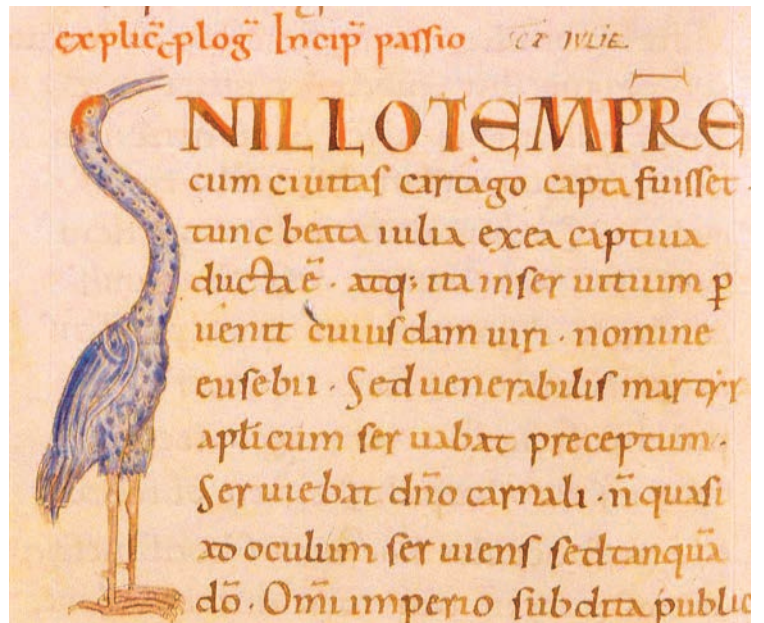 explic̄ ꝓlog̅ Incip̄ passio scē IVLIE
NILLOTEMPR̄E
cum ciuitas cartago capta fuisset.
tunc beata iulia exea captiua
ducta ē. atq; ita inser uitium ꝑ
uenit cuiusdam uiri. nomine
eusebii. Sed uenerabilis martyr
apłicum ser uabat preceptum.
Ser uiebat dn̄o carnali. n̄ quasi
ad oculum ser uiens sed tanquā
dō. Omī imperio subdita public